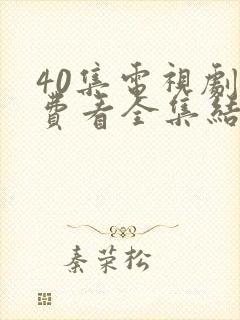 40集電視劇
費看全集結
秦荣松